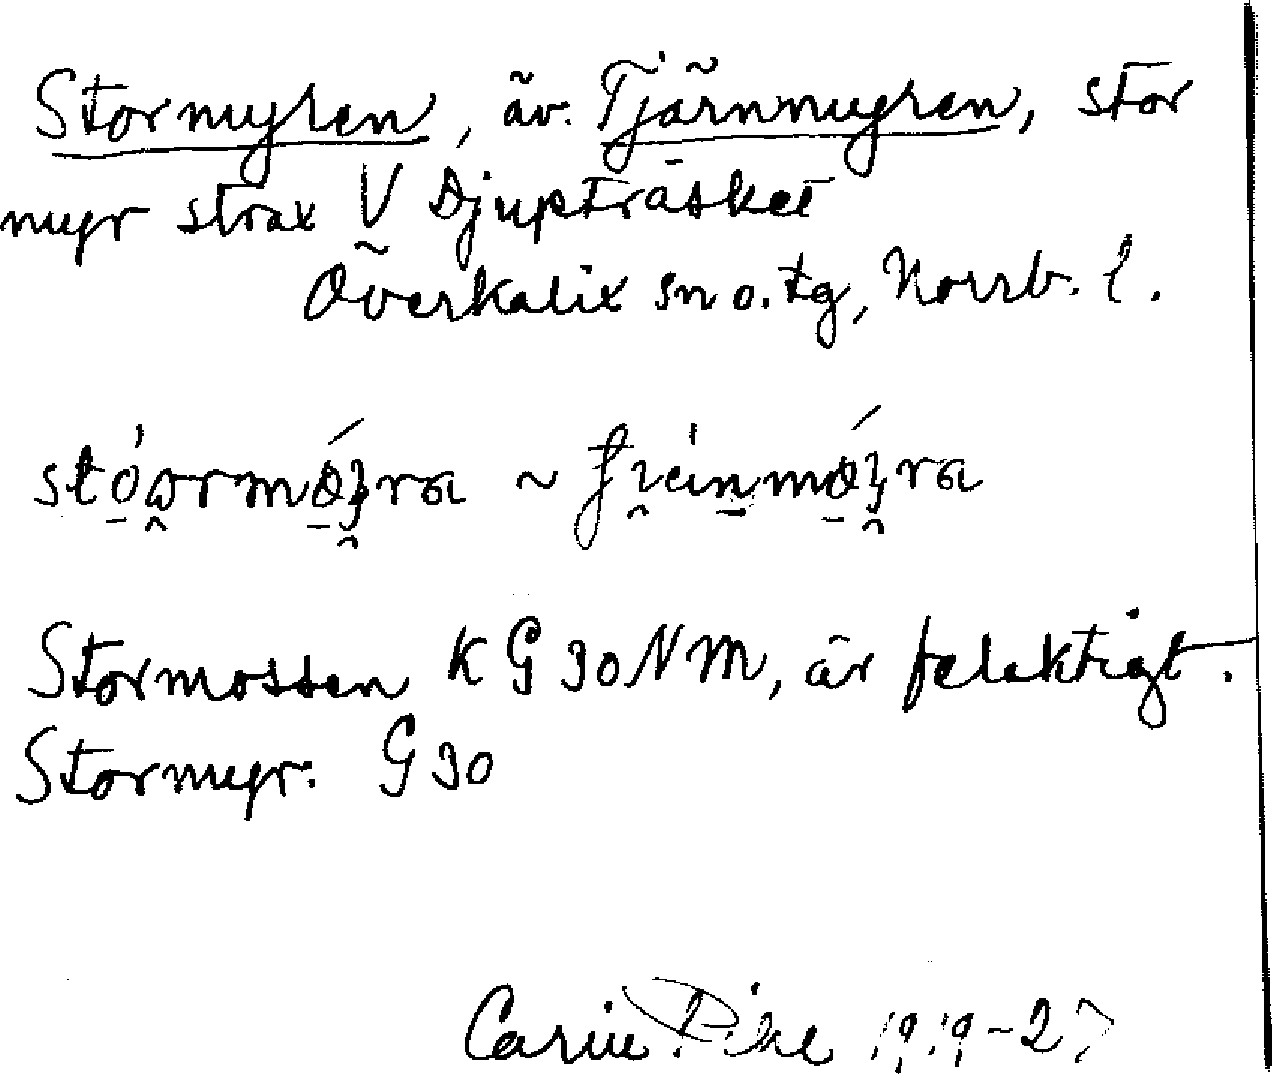 Stormyren, äv. Tjärnmyren, stor
myr strax V Djupträsket
Överkalix sn o. tg, Norrb. l.
Stormossen K G 30 NM, är felaktigt.
Stormyr. G 30
Carin Pihl 1919-27